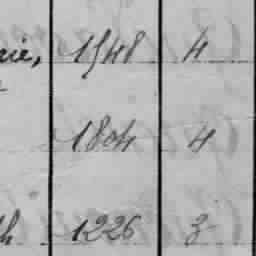 1548 4
1804 4
1226 3